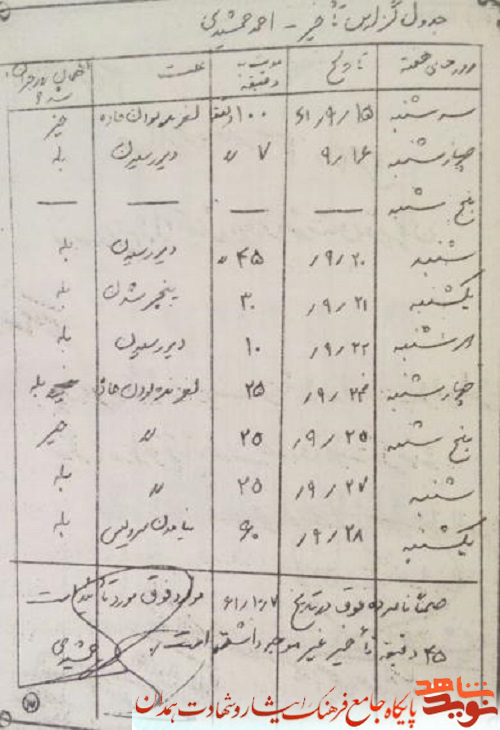 جدول گزارش تأخیر - احمد جمشیدی
روزهای هفته تاریخ مدت به دقیقه علت
سه شنبه ۶۱/۹/۱۵ ۱۰۰ دقیقه لغزنده بودن جاده خیر
چهارشنبه ۹/۱۶ ۷ " دیر رسیدن بله
پنج شنبه — — — —
شنبه /۹/۲۰ ۴۵ " دیر رسیدن بله
یکشنبه /۹/۲۱ ۳۰ پنچر شدن بله
دوشنبه /۹/۲۲ ۱۰ دیر رسیدن بله
چهارشنبه /۹/۲۴ ۲۵ لغزنده بودن جاده بله
پنج شنبه /۹/۲۵ ۲۵ " خیر
شنبه /۹/۲۷ ۲۵ " بله
یکشنبه /۹/۲۸ ۶۰ نیامدن سرویس بله
ضمناً نامبرده فوق در تاریخ ۶۱/۱۰/۷ موارد فوق مورد تأیید است
۳۵ دقیقه تأخیر غیر موجه داشته است. جمشیدی
نوید شاهد پایگاه جامع فرهنگ ایثار و شهادت همدان